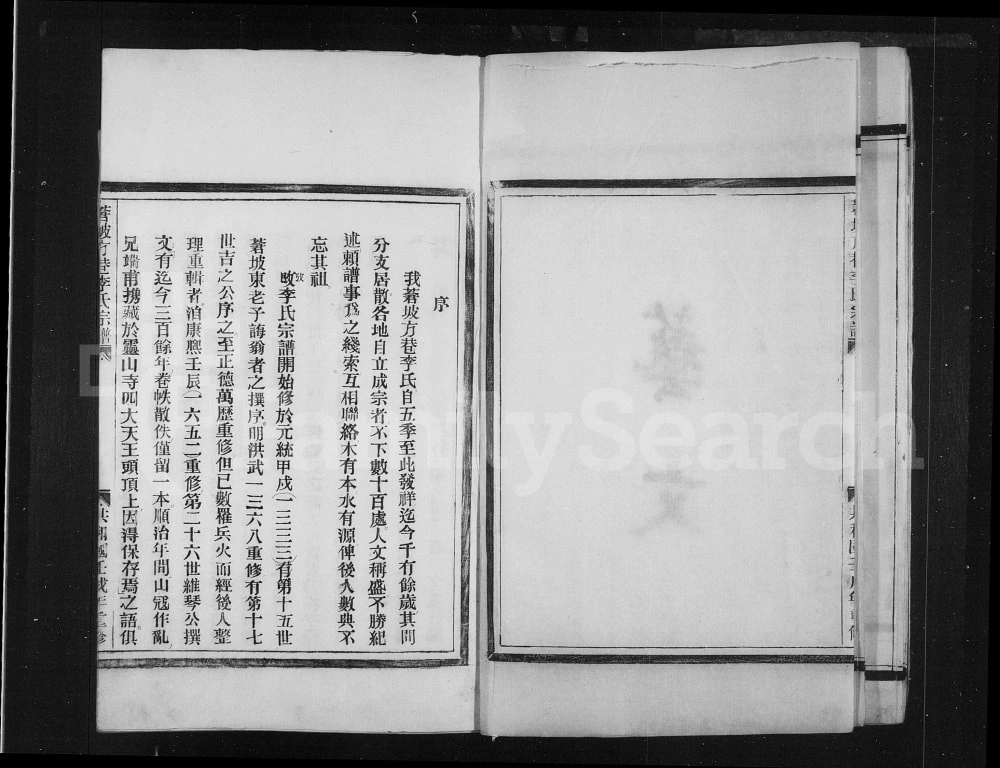 序
我莙坡方巷李氏自五季至此發祥迄今千有餘歲其間
分支居散各地自立成宗者不下數十百處人文稱盛不勝紀
述頼譜事爲之綫索互相聯絡木有本水有源俾後人數典不
忘其祖
攷李氏宗譜開始修於元統甲戌(一三三三)有第十五世
莙坡東老予誨翁者之撰序明洪武一三六八重修有第十七
世吉之公序之至正德萬歷重修但已數罹兵火而經後人整
理重輯者洎康熈壬辰(一六五二重修第二十六世維琴公撰
文有迄今三百餘年卷帙散佚僅留一本順治年間山冦作亂
兄端甫携藏於靈山寺四大天王頭頂上因得保存焉之語俱
莙坡方巷李氏宗譜
共和國壬戌年重修
FamilySearch